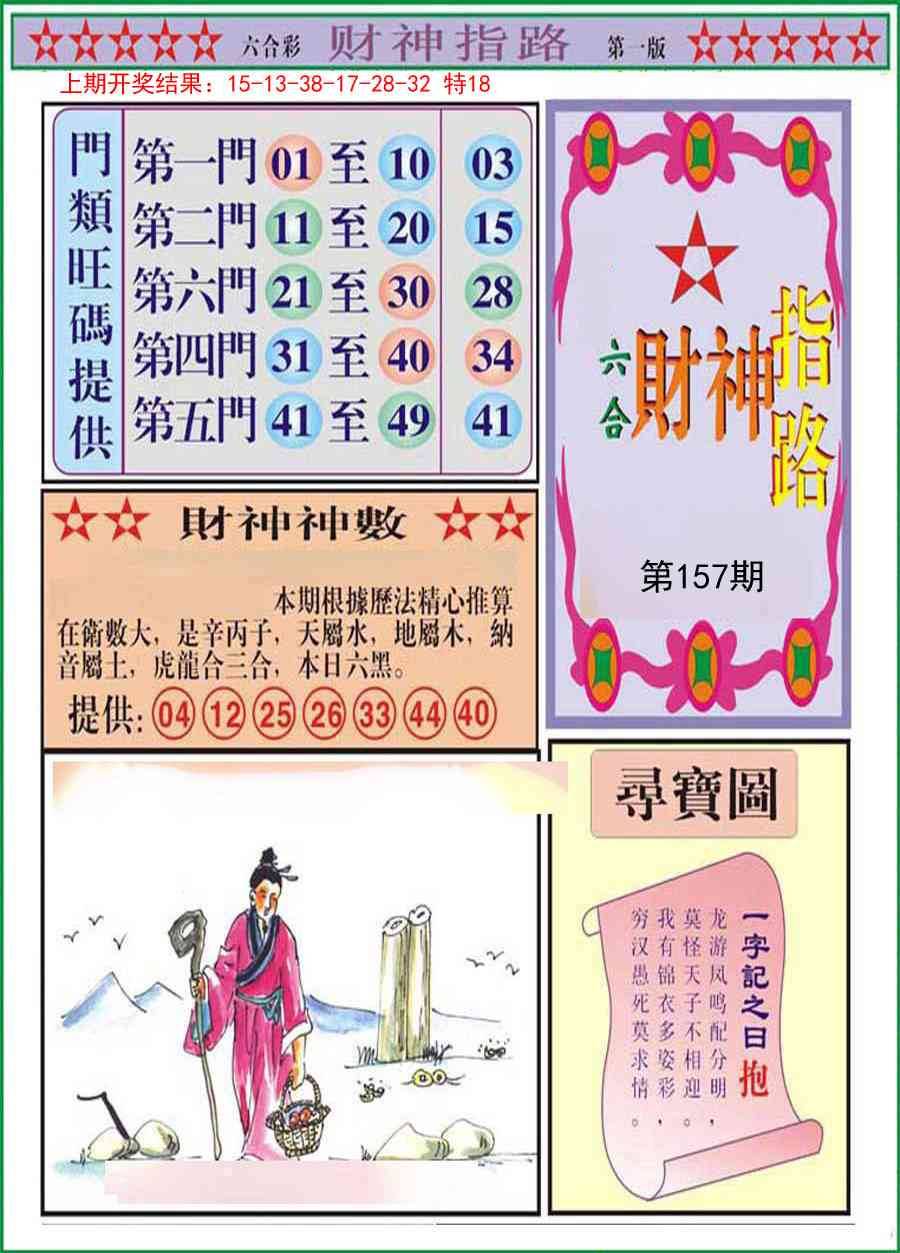 六合彩 财神指路 第一版
上期开奖结果：15-13-38-17-28-32 特18
門類旺碼提供
第一門 01 至 10 03
第二門 11 至 20 15
第六門 21 至 30 28
第四門 31 至 40 34
第五門 41 至 49 41
六合 財神指路
第157期
財神神數
本期根據歷法精心推算
在衛數大，是辛丙子，天屬水，地屬木，納
音屬土，虎龍合三合，本日六黑。
提供: 04 12 25 26 33 44 40
尋寶圖
一字記之曰 抱
龙游凤鸣配分明，
莫怪天子不相迎。
我有锦衣多姿彩，
穷汉愚死莫求情。